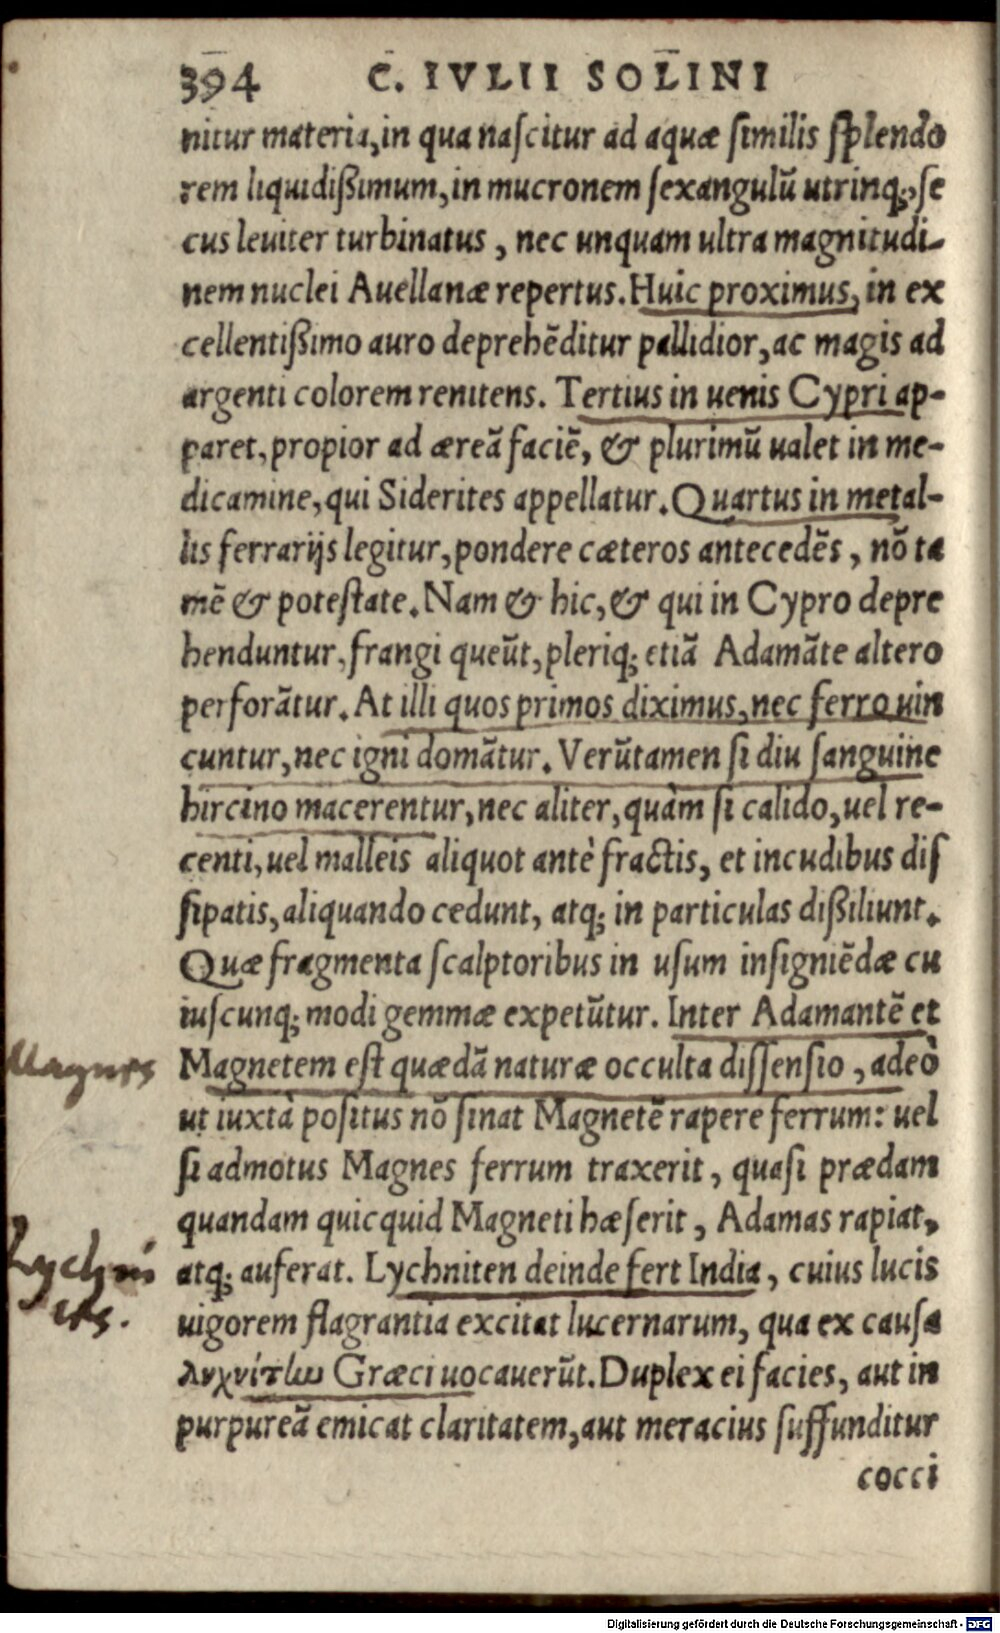 394 C. IVLII SOLINI
nitur materia, in qua nascitur ad aquæ similis splendo
rem liquidißimum, in mucronem sexangulũ utrinq;, se
cus leuiter turbinatus, nec unquam ultra magnitudi-
nem nuclei Auellanæ repertus. Huic proximus, in ex
cellentißimo auro deprehẽditur pallidior, ac magis ad
argenti colorem renitens. Tertius in uenis Cypri ap-
paret, propior ad æreã faciẽ, & plurimũ ualet in me-
dicamine, qui Siderites appellatur. Quartus in metal-
lis ferrarijs legitur, pondere cæteros antecedẽs, nõ ta
mẽ & potestate. Nam & hic, & qui in Cypro depre
henduntur, frangi queũt, pleriq; etiã Adamãte altero
perforãtur. At illi quos primos diximus, nec ferro uin
cuntur, nec igni domãtur. Verũtamen si diu sanguine
hircino macerentur, nec aliter, quàm si calido, uel re-
centi, uel malleis aliquot antè fractis, et incudibus dis
sipatis, aliquando cedunt, atq; in particulas dißiliunt.
Quæ fragmenta scalptoribus in usum insigniẽdæ cu
iuscunq; modi gemmæ expetũtur. Inter Adamantẽ et
Magnes
Magnetem est quædã naturæ occulta dissensio, adeò
ut iuxtà positus nõ sinat Magnetẽ rapere ferrum: uel
si admotus Magnes ferrum traxerit, quasi prædam
quandam quicquid Magneti hæserit, Adamas rapiat,
Lychni
tes.
atq; auferat. Lychniten deinde fert India, cuius lucis
uigorem flagrantia excitat lucernarum, qua ex causa
λυχνίτην Græci uocauerũt. Duplex ei facies, aut in
purpureã emicat claritatem, aut meracius suffunditur
cocci
Digitalisierung gefördert durch die Deutsche Forschungsgemeinschaft - DFG